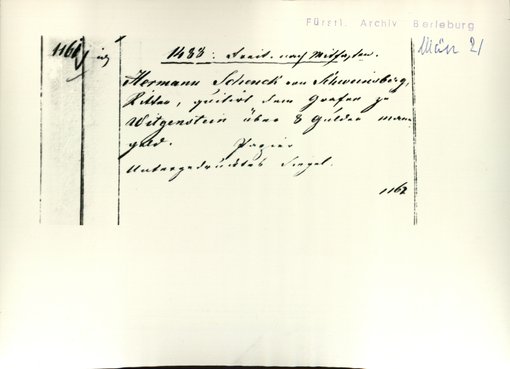 Fürstl. Archiv Berleburg
März 21
1161
1433: Freit. nach Mitfasten.
Hermann Schenck von Schweinsberg,
Ritter, quitirt dem Grafen zu
Witgenstein über 8 Gulden mann
geld. Papier
Untergedrucktes Siegel.
1162